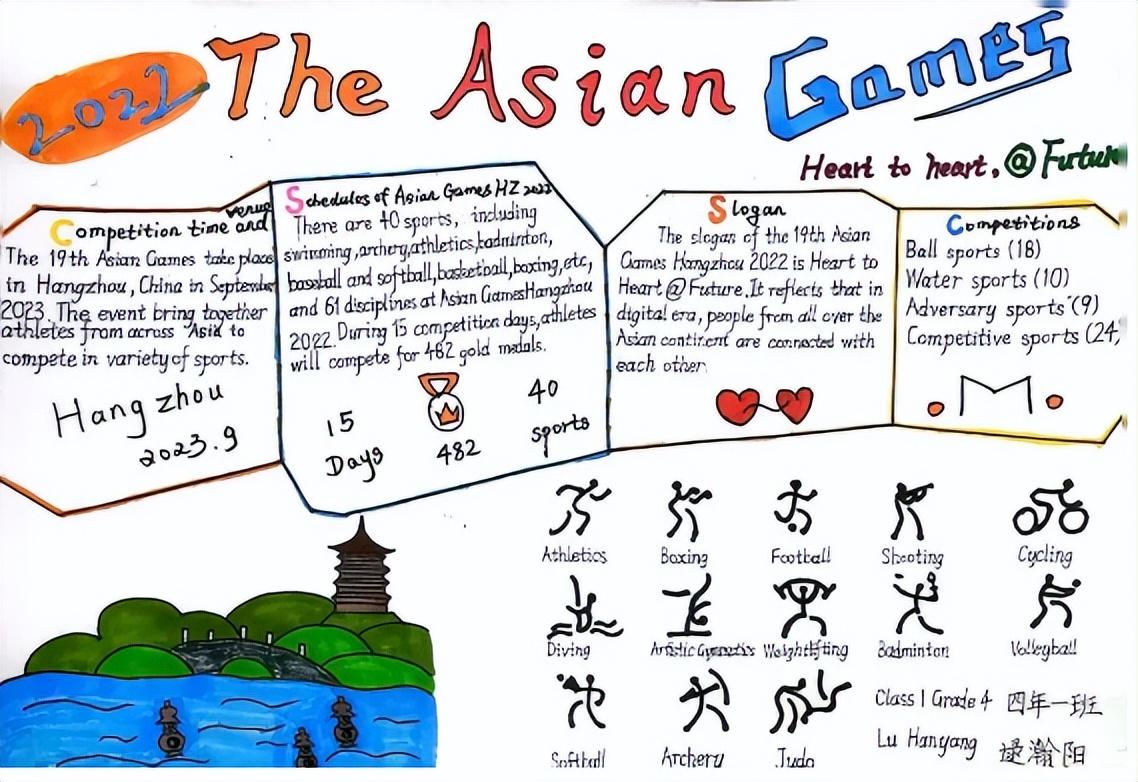 2022 The Asian Games
Heart to heart. @Futur
Competition time and venue
The 19th Asian Games take place
in Hangzhou, China in September
2023. The event bring together
athletes from across "Asia to
compete in variety of sports.
Hang zhou
2023.9
Schedules of Asian Games HZ 2022
There are 40 sports, including
swimming, archery, athletics, badminton,
baseball and softball, basketball, boxing, etc,
and 61 disciplines at Asian Games Hangzhou
2022. During 15 competition days, athletes
will compete for 482 gold medals.
15
Days
482
40
sports
Slogan
The slogan of the 19th Asian
Games Hangzhou 2022 is Heart to
Heart @ Future. It reflects that in
digital era, people from all over the
Asian continent are connected with
each other.
Competitions
Ball sports (18)
Water sports (10)
Adversary sports (9)
Competitive sports (24,
Athletics
Boxing
Football
Shooting
Cycling
Diving
Artistic Gymnastics
Weightlifting
Badminton
Volleyball
Softball
Archery
Judo
Class 1 Grade 4 四年一班
Lu Hanyang 逯瀚阳